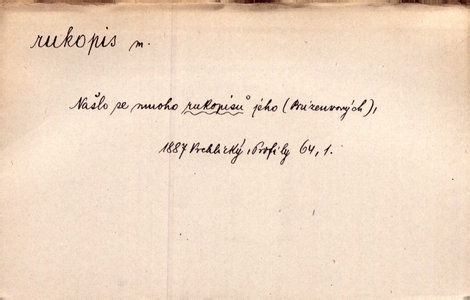 rukopis m.
Našlo se mnoho rukopisů jeho (Brizeuxových),
1887 Vrchlický, Profily 64, 1.